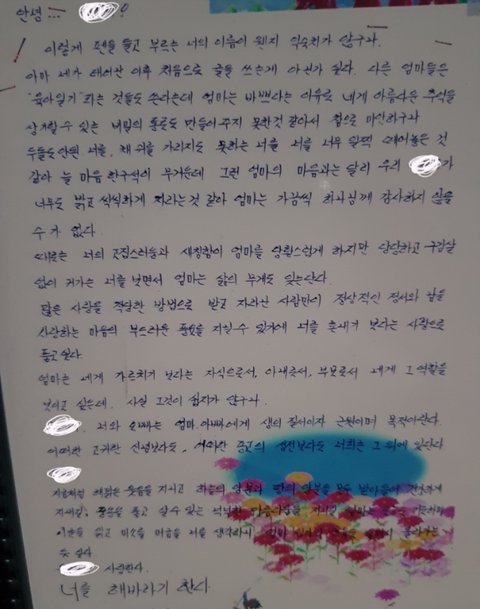 안녕...
이렇게 펜을 들고 부르는 너의 이름이 웬지 익숙치가 않구나.
아마 네가 태어난 이후 처음으로 글을 쓰는게 아닌가 싶다. 다른 엄마들은
"육아일기"라는 것들도 쓴다는데 엄마는 바쁘다는 이유로 네게 아름다운 추억을
상기할 수 있는 한편도 만들어 주지 못한것 같아서 참으로 미안하구나
두돌도 안된 너를, 채 쉬를 가리지도 못하는 너를 너무 일찍 떼어놓은 것
같아 늘 마음 한구석이 무거운데 그런 엄마의 마음과는 달리 우리 가
너무도 밝고 씩씩하게 자라는것 같아 엄마는 가끔씩 하나님께 감사하지 않을
수 가 없다.
때로는 너의 고집스러움과 새침함이 엄마를 당황스럽게 하지만 당당하고 구김살
없이 커가는 너를 보면서 엄마는 삶의 무게도 잊는단다.
많은 사랑을 적당한 방법으로 받고 자라난 사람만이 정상적인 정서와 남을
사랑하는 마음의 부드러운 을 지닐수 있기에 너를 혼내기 보다는 사랑으로
품고 싶다
엄마는 네게 가르치기 보다는 자식으로서, 아내로서, 부모로서 네게 그 역할을
보이고 싶은데. 사실 그것이 쉽지가 않구나.
너와 는 엄마, 아빠에게 생의 질서이자 근원이며 목적이란다.
어떠한 고귀한 신념보다도, 어떠한 종교의 보다도 너희는 그 위에 있단다
지금처럼 해맑은 웃음을 지니고 하늘의 과 땅의 을 모두 받아들여 건강하게
자라길, 을 품고 살 수 있는 넉넉한 을 지니길 엄마는
이 글을 읽고 미소를 머금을 너를 생각하니 엄마
듯 싶다
사랑한다.
너를 해바라기 한다